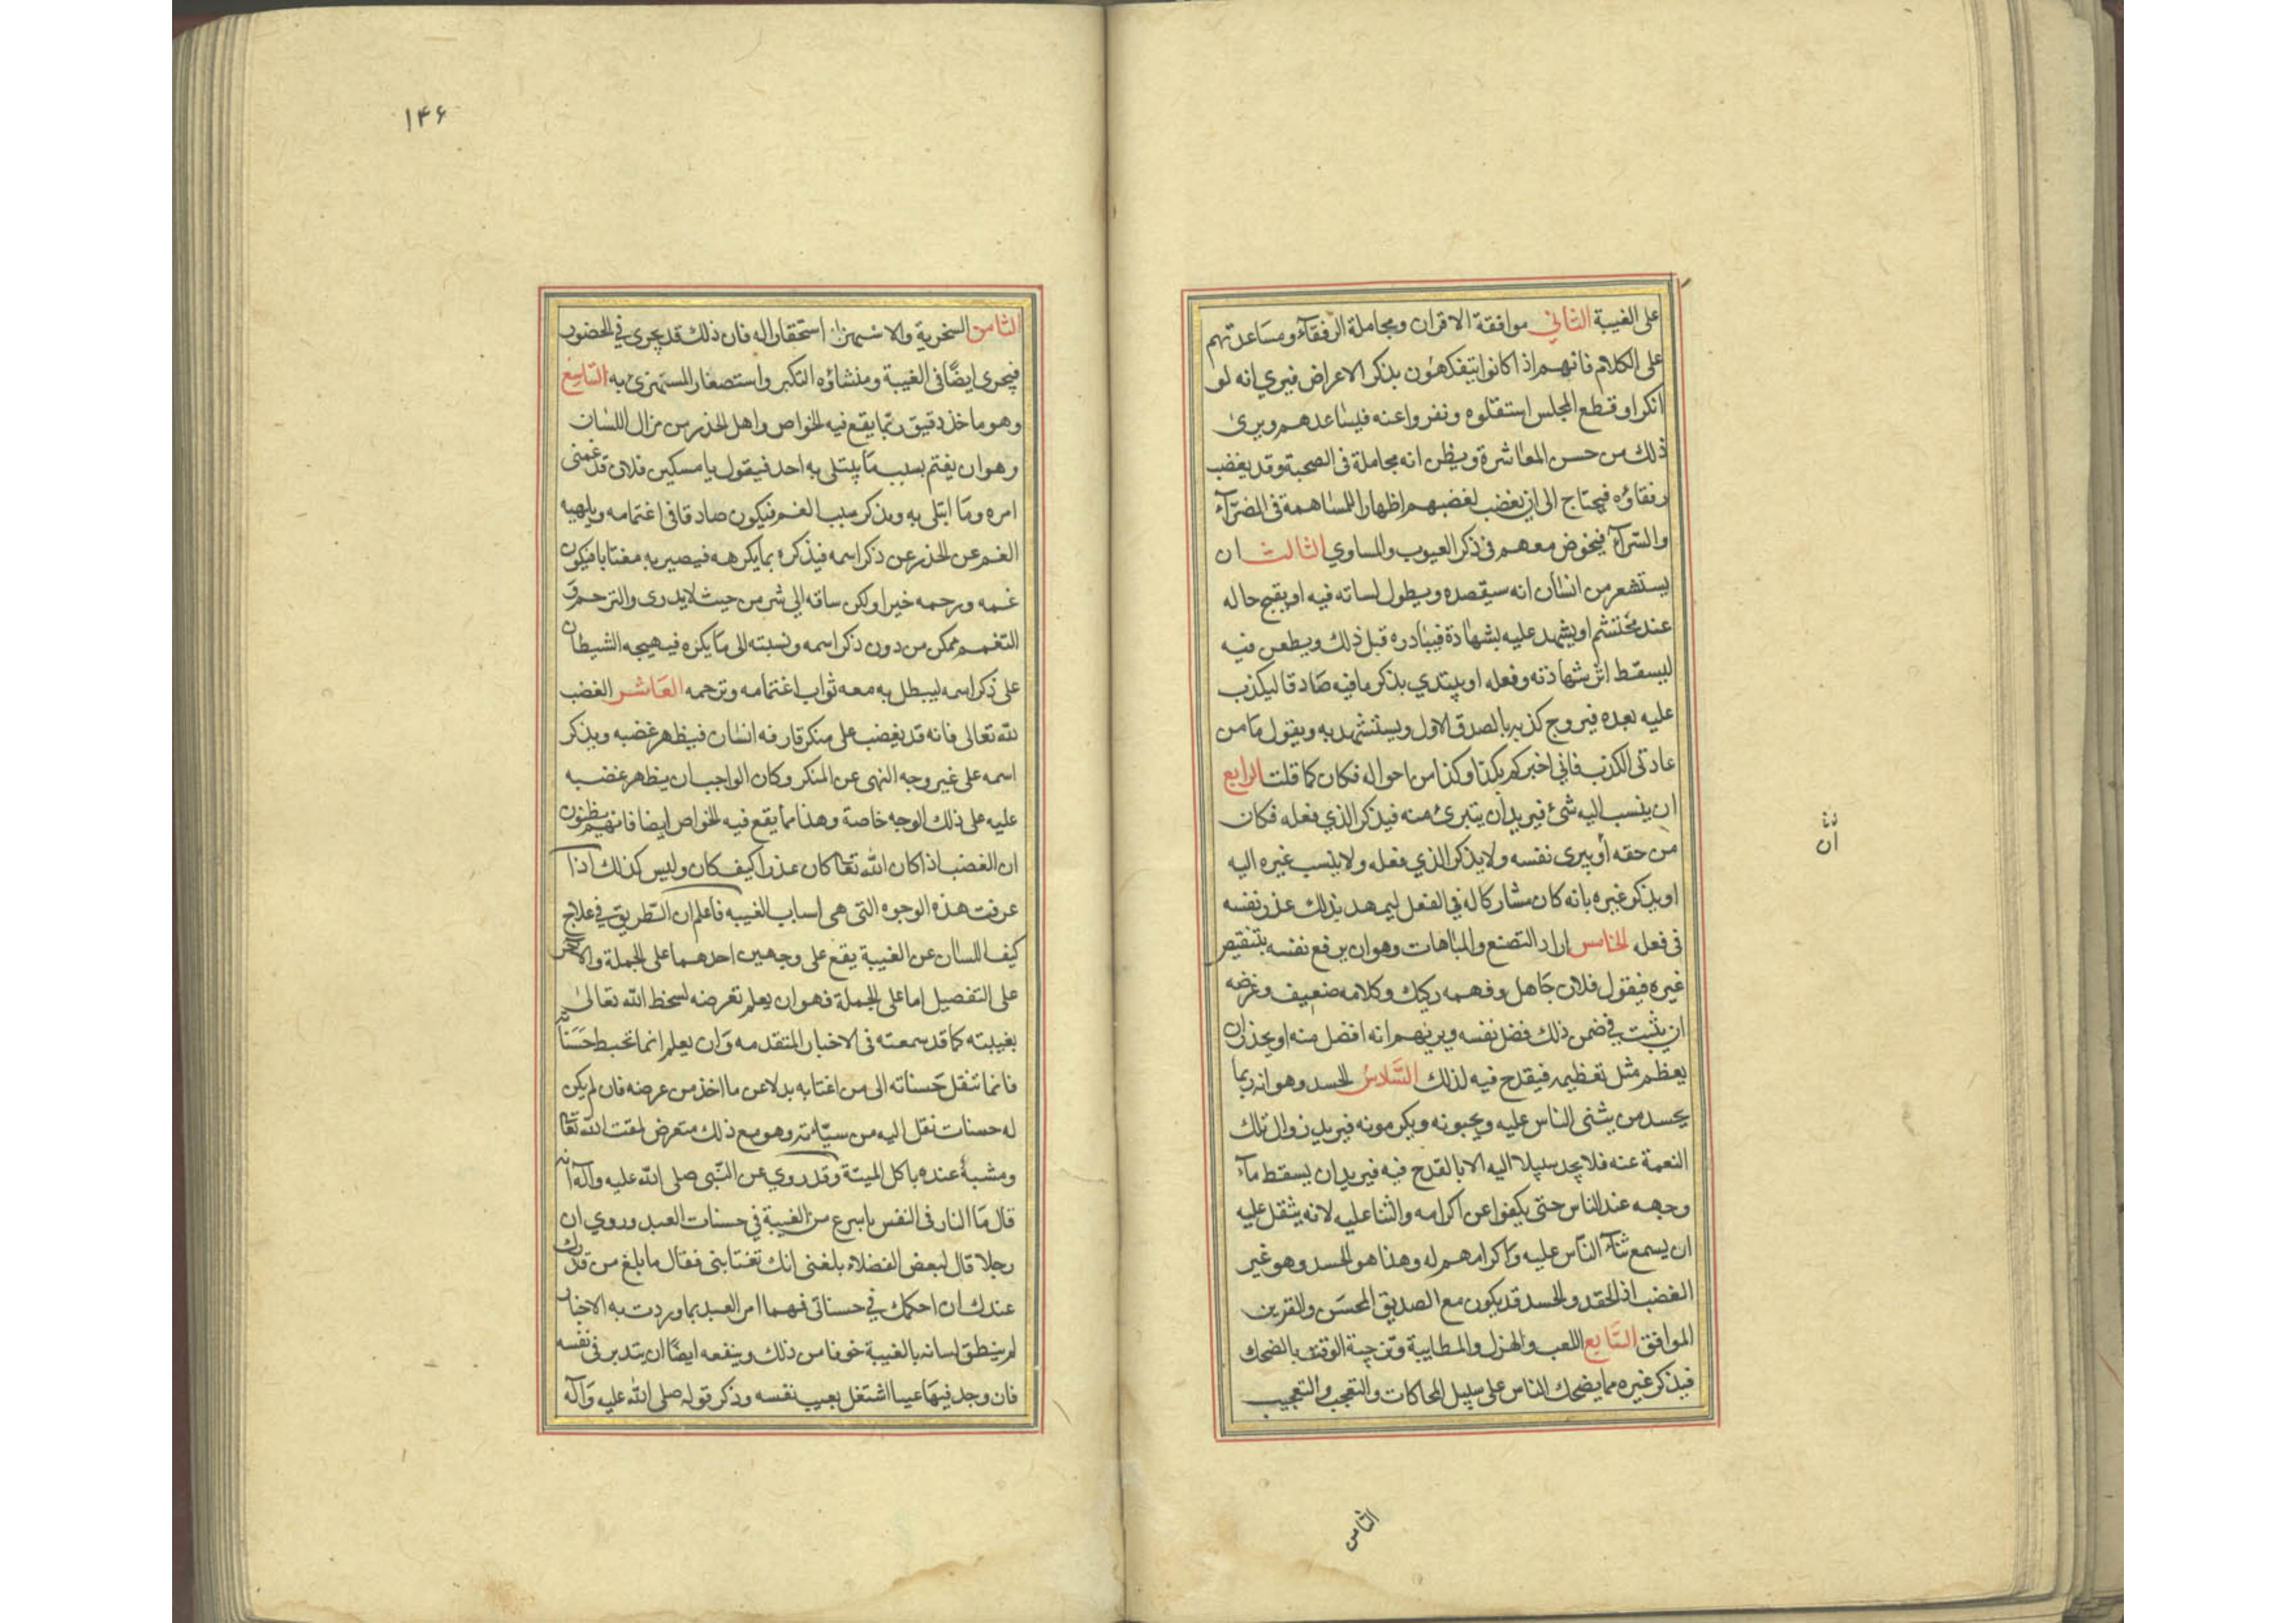 على الغيبة الثاني موافقة الاقران ومجاملة الرفقآء ومساعدتهم
على الكلام فانهم اذا كانوا يتفكهون بذكر الاعراض فيري انه لو
انكر او قطع المجلس استقلوه ونفروا عنه فيساعدهم ويرى
ذلك من حسن المعاشرة ويظن انه مجاملة فى الصحبة وقد يغضب
رفقاؤه فيحتاج الى ان يغضب لغضبهم اظهارا للمساهمة فى الضرّآء
والسّرآء فيخوض معهم فى ذكر العيوب والمساوي الثالث ان
يستشعر من انسان انه سيقصده ويطول لسانه فيه او يقبح حاله
عند محتشم او يشهد عليه بشهادة فيبادره قبل ذلك ويطعن فيه
ليسقط اثر شهادته وفعله او يبتدي بذكر مافيه صادقا ليكذب
عليه بعده فيروج كذبه بالصدق الاول ويستشهد به ويقول ما من
عادتى الكذب فاني اخبركم بكذا وكذا من احواله فكان كما قلت الرابع
ان ينسب اليه شئ فيريد ان يتبرئ منه فيذكر الذي فعله فكان
من حقه أو يبرى نفسه ولا يذكر الذي فعله ولا ينسب غيره اليه
او يذكر غيره بانه كان مشاركا له في الفعل ليمهد بذلك عذر نفسه
فى فعله الخامس اراد التصنع والمباهات وهو ان يرفع نفسه بتنقيص
غيره فيقول فلان جاهل وفهمه ركيك وكلامه ضعيف وغرضه
ان يثبت في ضمن ذلك فضل نفسه ويريهم انه افضل منه او يحذر ان
يعظم مثل تعظيمه فيقدح فيه لذلك السّادس الحسد وهو انه ربما
يحسد من يثنى الناس عليه ويحبونه ويكرمونه فيريد زوال تلك
النعمة عنه فلا يجد سبيلا اليه الا بالقدح فيه فيريد ان يسقط مآء
وجهه عند الناس حتى يكفوا عن اكرامه والثنا عليه لانه يثقل عليه
ان يسمع ثنآء النّاس عليه واكرامهم له وهذا هو الحسد وهو غير
الغضب اذ الحقد والحسد قد يكون مع الصديق المحسن والقرين
الموافق السّابع اللعب والهزل والمطايبة وتزجية الوقت بالضحك
فيذكر غيره مما يضحك الناس على سبيل المحاكات والتعجب والتعجيب
الثامن
ن
ان
١۴۶
الثامن السخرية والاستهزاء استحقارا له فان ذلك قد يجرى في الحضور
فيجرى ايضًا فى الغيبة ومنشاؤه التكبر واستصغار المستهزئ به التاسع
وهو ماخذ دقيق ربّما يقع فيه الخواص واهل الحذر من مزال اللسان
وهو ان يغتم بسبب ما يبتلى به احد فيقول يا مسكين فلان قد غمنى
امره وما ابتلى به ويذكر سبب الغم فيكون صادقا فى اغتمامه ويلهيه
الغم عن الحذر عن ذكر اسمه فيذكره بما يكرهه فيصير به مغتابا فيكون
غمه ورحمه خيرا ولكن ساقه الى شر من حيث لا يدرى والترحم و
التغمم ممكن من دون ذكر اسمه ونسبته الى ما يكره فيهيجه الشيطان
على ذكر اسمه ليبطل به معه ثواب اغتمامه وترحمه العاشر الغضب
لله تعالى فانه قد يغضب على منكر قارفه انسان فيظهر غضبه ويذكر
اسمه على غير وجه النهى عن المنكر وكان الواجب ان يظهر غضبه
عليه على ذلك الوجه خاصة وهذا مما يقع فيه الخواص ايضا فانهم يظنون
ان الغضب اذا كان لله تعا كان عذرا كيف كان وليس كذلك اذا
عرفت هذه الوجوه التى هى اسباب الغيبه فاعلم ان الطريق في علاج
كيف اللسان عن الغيبة يقع على وجهين احدهما على الجملة والاخر
على التفصيل اما على الجملة فهو ان يعلم تعرضه لسخط الله تعالى
بغيبته كما قد سمعته فى الاخبار المتقدمه وان يعلم انما تحبط حسناته
فانما تنقل حسناته الى من اغتابه بدلا عن ما اخذ من عرضه فان لم يكن
له حسنات نقل اليه من سيّاته وهو مع ذلك متعرض لمقت الله تعا
ومشبة عنده باكل الميتة وقد روي عن النّبى صلى الله عليه وآله انه
قال ما النار فى النفس باسرع من الغيبة في حسنات العبد وروي ان
رجلا قال لبعض الفضلاء بلغنى انك تغتابنى فقال ما بلغ من قدرك
عندك ان احكمك في حسناتى فهما امر العبد بما وردت به الاخبار
لم ينطق لسانه بالغيبة خوفا من ذلك وينفعه ايضًا ان يتدبر فى نفسه
فان وجد فيها عيبا اشتغل بعيب نفسه وذكر قوله صلى الله عليه وآله